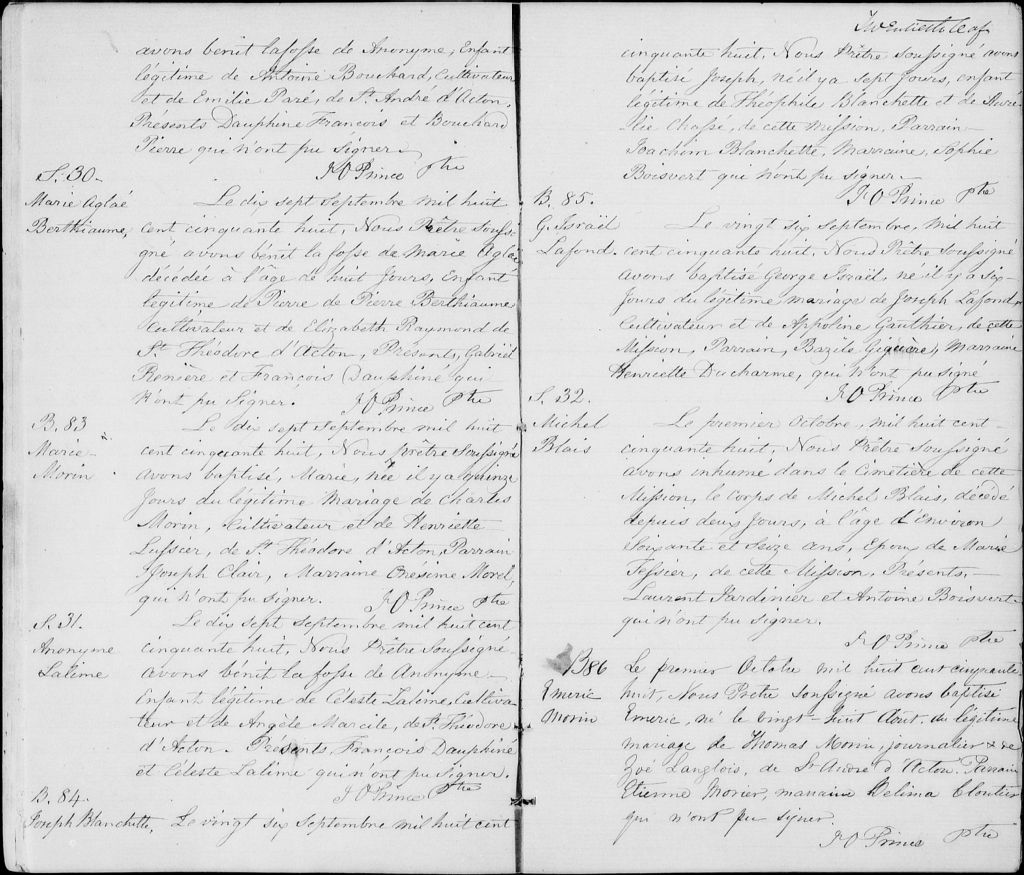 avons benit lafosse de Anonyme, Enfant
légitime de Antoine Bouchard, Cultivateur
et de Emilie Paré, de St. André d'Acton,
Présents Dauphine Francois et Bouchard
Pierre qui n'ont pu signer.
J O Prince ptre
S. 30.
Marie Aglaé
Berthiaume,
Le dix sept Septembre mil huit
cent cinquante huit, Nous Prêtre Soussi-
gné avons bénit la fosse de Marie Aglaé
décédée à l'âge de huit Jours, Enfant
légitime de Pierre de Pierre Berthiaume
Cultivateur et de Elizabeth Raymond de
St. Théodore d'Acton, Présents, Gabriel
Renière et François Dauphiné qui
n'ont pu Signer. J O Prince ptre
B. 83
Marie
Morin
Le dix sept Septembre mil huit
cent cinquante huit, Nous prêtre Soussigné
avons baptisé, Marie, née il y a quinze
Jours du légitime Mariage de Charles
Morin, Cultivateur et de Henriette
Lussier, de St. Théodore d'Acton, Parrain
Joseph Clair, Marraine Onésime Morel,
qui n'ont pu signer. J O Prince ptre
S. 31.
Anonyme
Lalime
Le dix sept Septembre mil huit cent
cinquante huit, Nous Prêtre Soussigné
avons bénit la fosse de Anonyme
Enfant légitime de Céleste Lalime, Cultiva-
teur et de Angèle Marcile, de St. Théodore
d'Acton. Présents, François Dauphiné
et Céleste Lalime qui n'ont pu Signer.
J O Prince ptre
B. 84.
Joseph Blanchette, Le vingt six Septembre mil huit cent
Twentieth leaf
cinquante huit, Nous Prêtre Soussigné avons
baptisé Joseph, né il y a sept Jours, enfant
légitime de Théophile Blanchette et de
Chassé, de cette Mission, Parrain
Joachim Blanchette, Marraine, Sophie
Boisvert qui n'ont pu signer.
J O Prince ptre
B. 85.
G. Israël
Lafond.
Le vingt six Septembre, mil huit
cent cinquante huit, Nous Prêtre Soussigné
avons baptisé George Israël, né il y a six
Jours du légitime mariage de Joseph Lafond
Cultivateur et de Appoline Gauthier, de cette
Mission, Parrain, Bazile Giguère, Marraine
Henriette Ducharme, qui n'ont pu signé
J O Prince ptre
S. 32.
Michel
Blais
Le premier Octobre, mil huit cent
cinquante huit, Nous Prêtre Soussigné
avons inhumé dans le Cimetière de cette
Mission, le corps de Michel Blais, décédé
depuis deux Jours, à l'âge d'Environ
Soixante et Seize ans, Epoux de Marie
Tessier, de cette Mission, Présents,
Laurent Jardinier et Antoine Boisvert
qui n'ont pu Signer.
J O Prince ptre
B 86
Emeric
Morin
Le premier Octobre mil huit cent cinquante
huit, Nous Pretre soussigné avons baptisé
Emeric, né le vingt-huit Août, du légitime
mariage de Thomas Morin, journalier & de
Zoé Langlois, de St André d'Acton. Parrain
Etienne Morier, marraine Delima Cloutier
qui n'ont pu signer.
J O Prince ptre